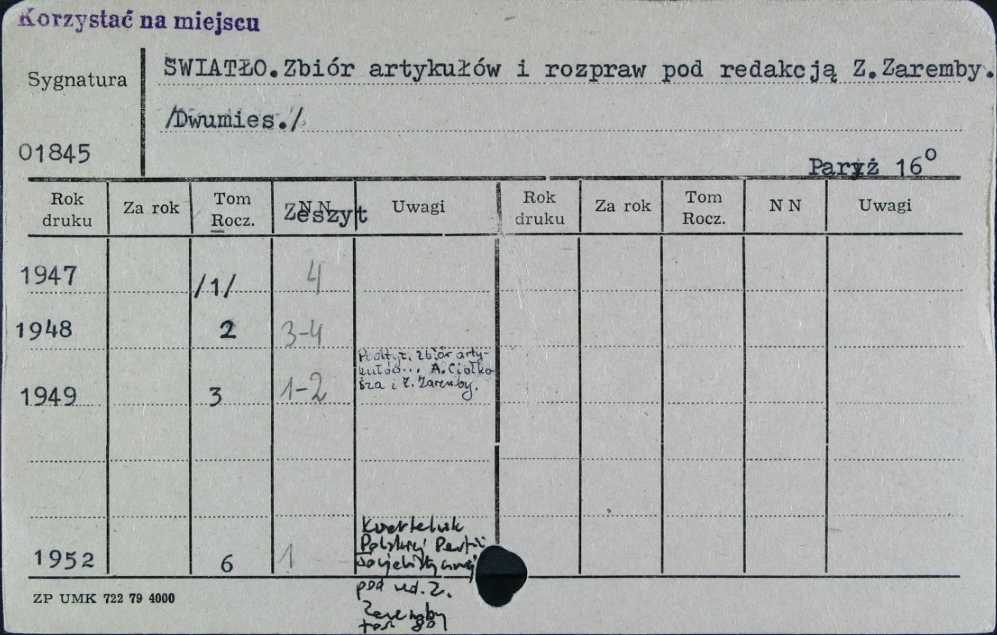 Korzystać na miejscu
Sygnatura
SWIATŁO.Zbiór artykułów i rozpraw pod redakcją Z.Zaremby.
/Dwumies./
01845
Paryż 16⁰
Rok druku Za rok Tom Rocz. NN Zeszyt Uwagi Rok druku Za rok Tom Rocz. NN Uwagi
1947 /1/ 4
1948 2 3-4
Podtyt. zbiór arty-
kułów... A. Ciołko
sza i Z. Zaremby.
1949 3 1-2
Kwartalnik
Polskiej Partii
Socjalistycznej
1952 6 1
pod red. Z.
Zaremby
ZP UMK 722 79 4000